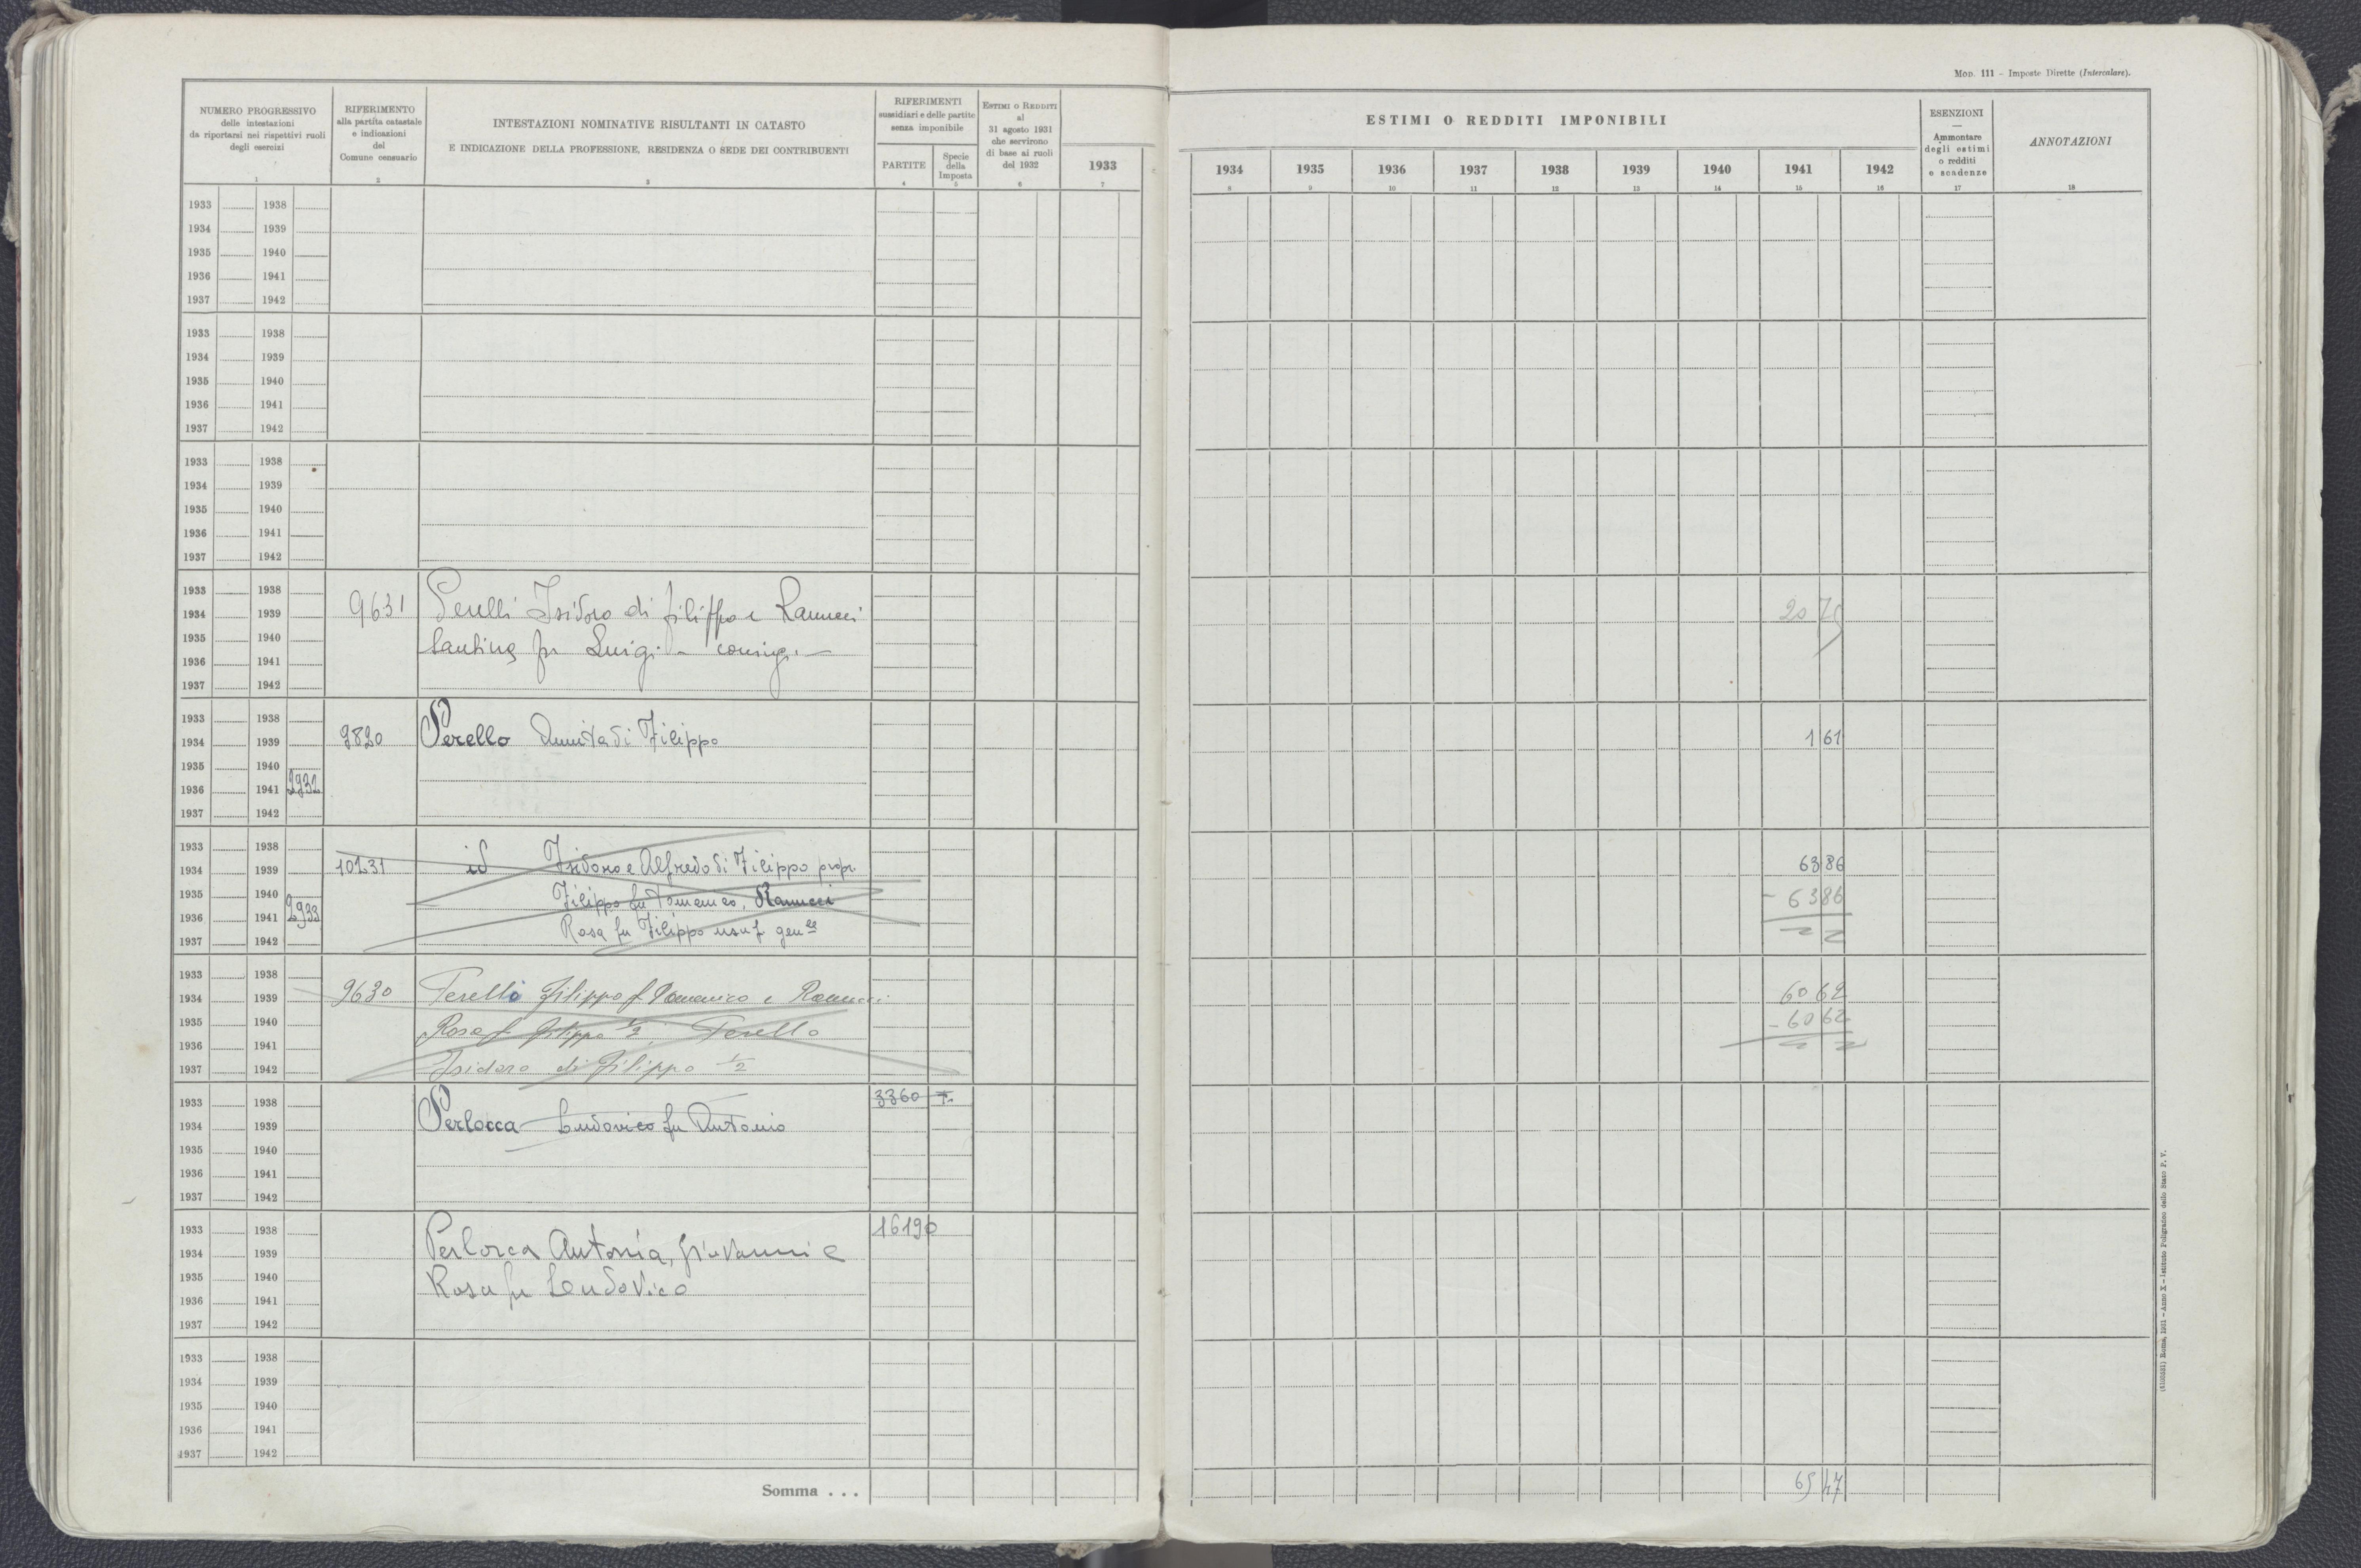 Mod. 111 - Imposte Dirette (Intercalare).
NUMERO PROGRESSIVO
delle intestazioni
da riportarsi nei rispettivi ruoli
degli esercizi
1
RIFERIMENTO
alla partita catastale
e indicazioni
del
Comune censuario
2
INTESTAZIONI NOMINATIVE RISULTANTI IN CATASTO
E INDICAZIONE DELLA PROFESSIONE, RESIDENZA O SEDE DEI CONTRIBUENTI
3
RIFERIMENTI
sussidiari e delle partite
senza imponibile
PARTITE
4
Specie
della
Imposta
5
ESTIMI O REDDITI
al
31 agosto 1931
che servirono
di base ai ruoli
del 1932
6
1933
7
ESTIMI O REDDITI IMPONIBILI
1934 1935 1936 1937 1938 1939 1940 1941 1942
8 9 10 11 12 13 14 15 16
ESENZIONI
Ammontare
degli estimi
o redditi
e scadenze
17
ANNOTAZIONI
18
1933 1938
1934 1939
1935 1940
1936 1941
1937 1942
1933 1938
1934 1939
1935 1940
1936 1941
1937 1942
1933 1938
1934 1939
1935 1940
1936 1941
1937 1942
1933 1938
1934 1939 9631 Perelli Isidoro di Filippo e Ranucci 20
1935 1940 Santina fu Luigi - coniugi -
1936 1941
1937 1942
1933 1938
1934 1939 9820 Perello Annita di Filippo 1 61
1935 1940
1936 1941 2932
1937 1942
1933 1938
1934 1939 10231 id Isidoro e Alfredo di Filippo propr. 63 86
1935 1940 Filippo fu Domenico, Ranucci - 63 86
1936 1941 2933
1937 1942 Rosa fu Filippo usuf gen
1933 1938
1934 1939 9630 Perello Filippo f Domenico e Ranucci 60 62
1935 1940 Rosa f Filippo 1/2 Perello - 60 62
1936 1941
1937 1942 Isidoro di Filippo 1/2
1933 1938 3360 T.
1934 1939 Perlocca Ludovico fu Antonio
1935 1940
1936 1941
1937 1942
1933 1938 16190
1934 1939 Perlocca Antonia, Giovanni e
1935 1940 Rosa fu Ludovico
1936 1941
1937 1942
1933 1938
1934 1939
1935 1940
1936 1941
1937 1942
Somma . . . 65 47
Roma, 1931 - Anno X - Istituto Poligrafico dello Stato P. V.